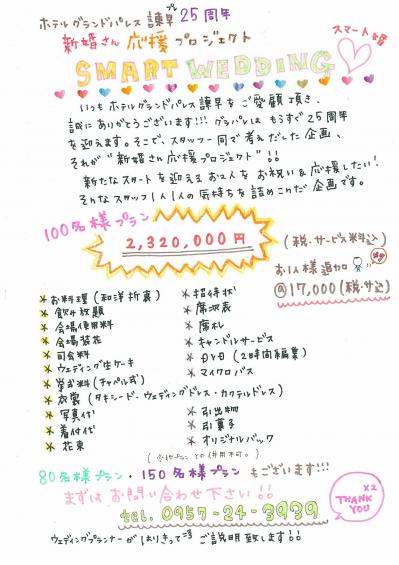 ホテルグランドパレス諫早 プレ 25周年
新婚さん応援プロジェクト
スマート婚
SMART WEDDING
いつもホテルグランドパレス諫早をご愛顧頂き、
誠にありがとうございます!!! グラパレは もうすぐ25周年
を迎えます。そこで、スタッフ一同で考えだした企画、
それが "新婚さん応援プロジェクト"!!
新たなスタートを迎えるお2人を お祝い&応援したい!
そんなスタッフ1人1人の気持ちを詰めこんだ企画です。
100名様プラン
2,320,000円
(税・サービス料込)
お1人様追加
@17,000(税・サ込)
* お料理(和洋折衷)
* 飲み放題
* 会場使用料
* 会場装花
* 司会料
* ウェディング生ケーキ
* 挙式料(チャペル式)
* 衣裳(タキシード・ウェディングドレス・カクテルドレス)
* 写真代
* 着付代
* 花束
* 招待状
* 席次表
* 席札
* キャンドルサービス
* DVD(2時間編集)
* マイクロバス
* 引出物
* 引菓子
* オリジナルバック
(※他プランとの併用不可。)
80名様プラン・150名様プランもございます!!!
まずはお問い合わせ下さい!!
tel. 0957-24-3939
ウェディングプランナーがはりきってご説明致します!!
×2
THANK YOU